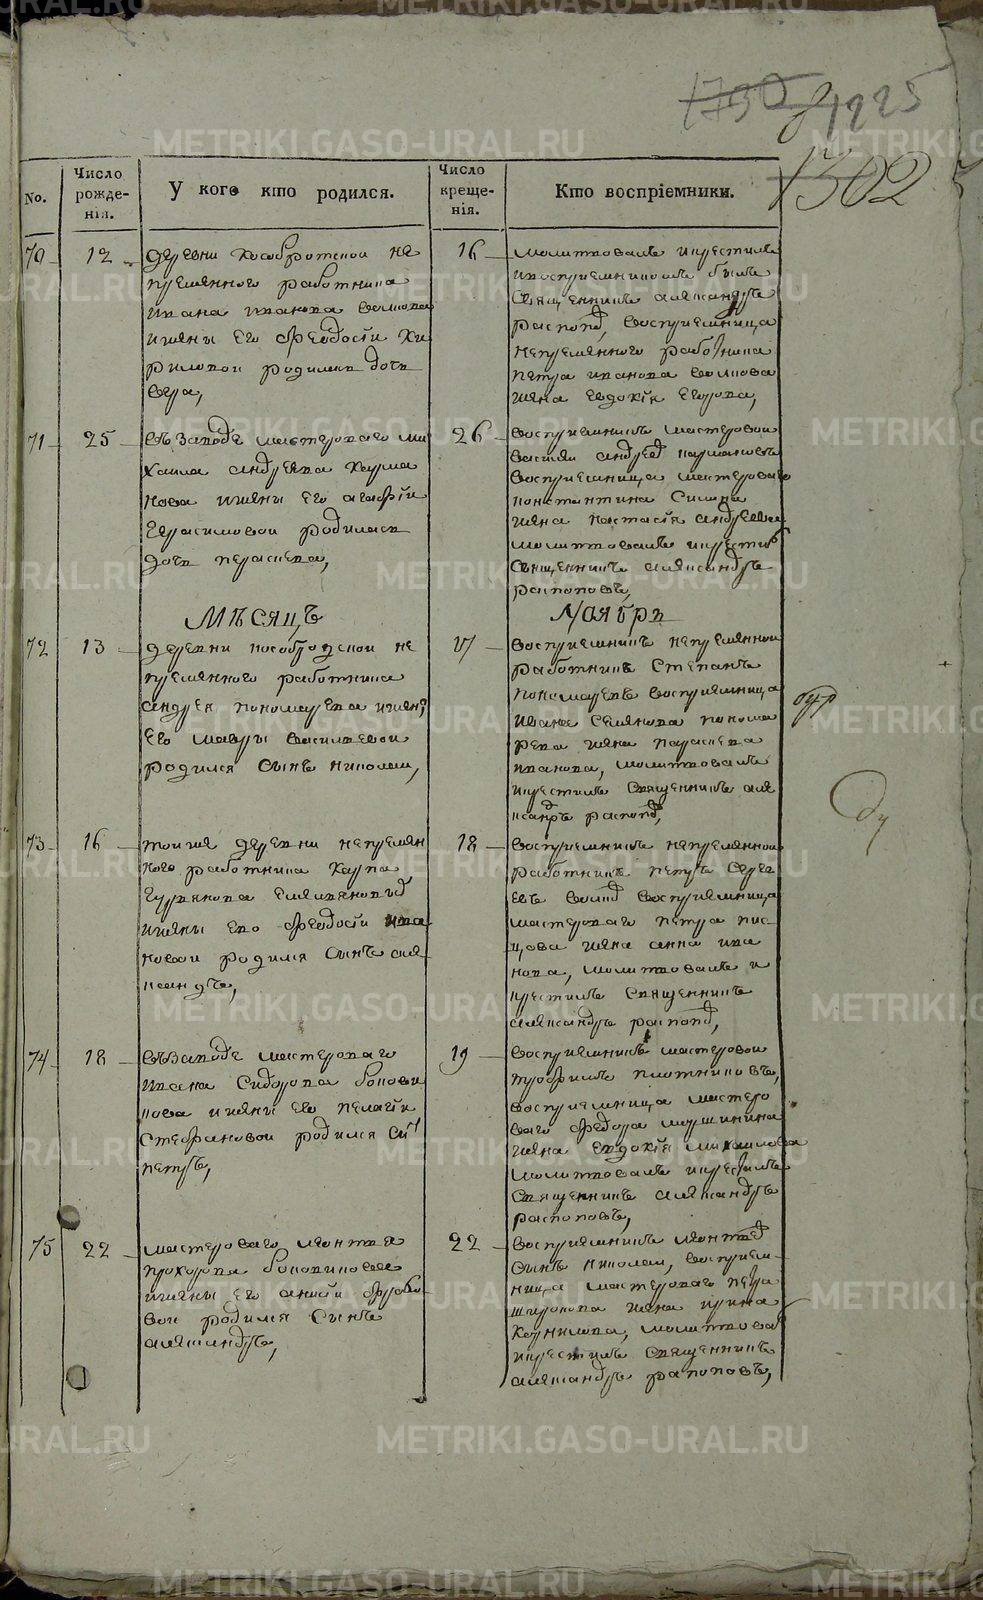 1225
1302
No.
Число рожде-нія.
У кого кто родился.
Число креще-нія.
Кто воспріемники.
70
12
деревни Кособродской не
пременного работника
Ивана Иванова Волкова
и жены его Феодосіи Ки
риловой родилась дочь
16
молитвовалъ и крестилъ
и воспріемникомъ былъ
Священникъ Александръ
воспріемница
Непременного работника
Петра Иванова Волкова
жена Евдокія Егорова,
71
25
въ Заводе мастероваго Ми
хаила Андреева
нова и жены его Агафіи
Герасимовой родилась
дочь Пераскева,
26
воспріемникъ мастеровой
Василей Андреев
воспріемница мастероваго
Константина Силина
жена Настасія Андреева
молитвовалъ и крестил
Священникъ Александръ
распоповъ,
Мѣсяцъ
Ноябрь
72
13
деревни Кособродской не
пременного работника
Андрея Пономарева и жены
его Мавры Васильевой
родился Сынъ Николай,
17
воспріемникъ непременной
работникъ Степанъ
Пономаревъ воспріемница
Ивана Семенова Понома
рева жена Параскева
Иванова, молитвовалъ
и крестилъ Священникъ Але
73
16
тойже деревни непремен
ного работника Карпа
и жены его Феодосіи Ива
новой родился Сынъ Але
ксандръ,
18
воспріемникъ непременной
работникъ Петръ Серге
евъ воспріемница
мастероваго Петра
жена Анна Ива
нова, молитвовалъ и
крестилъ Священникъ
Александръ
74
18
въ Заводе мастероваго
Ивана Сидорова Бокови
кова и жены его Пелагіи
Стефановой родился Сын
Петръ,
19
воспріемникъ мастеровой
Трофимъ Плотниковъ,
воспріемница мастеро
ваго Федора
жена Евдокія Михаилова
молитвовалъ и крестилъ
Священникъ Александръ
распоповъ,
75
22
мастероваго Леонтья
Прохорова Боковикова
и жены его
вой родился Сынъ
Александръ,
22
воспріемникъ
Сынъ Николай, воспріем-
ница мастероваго Петра
Широкова жена Ирина
Корнилова, молитвовал
и крестилъ Священникъ
Александръ распоповъ,
METRIKI.GASO-URAL.RU